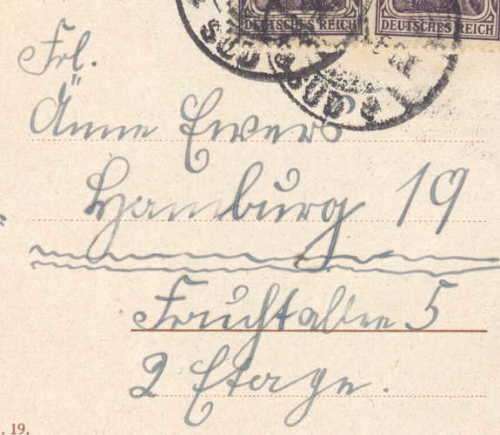 DEUTSCHES REICH DEUTSCHES REICH
SÜD SÜD
Frl.
Änne Ewers
Hamburg 19
Fruchtallee 5
2 Etage.
. 19.